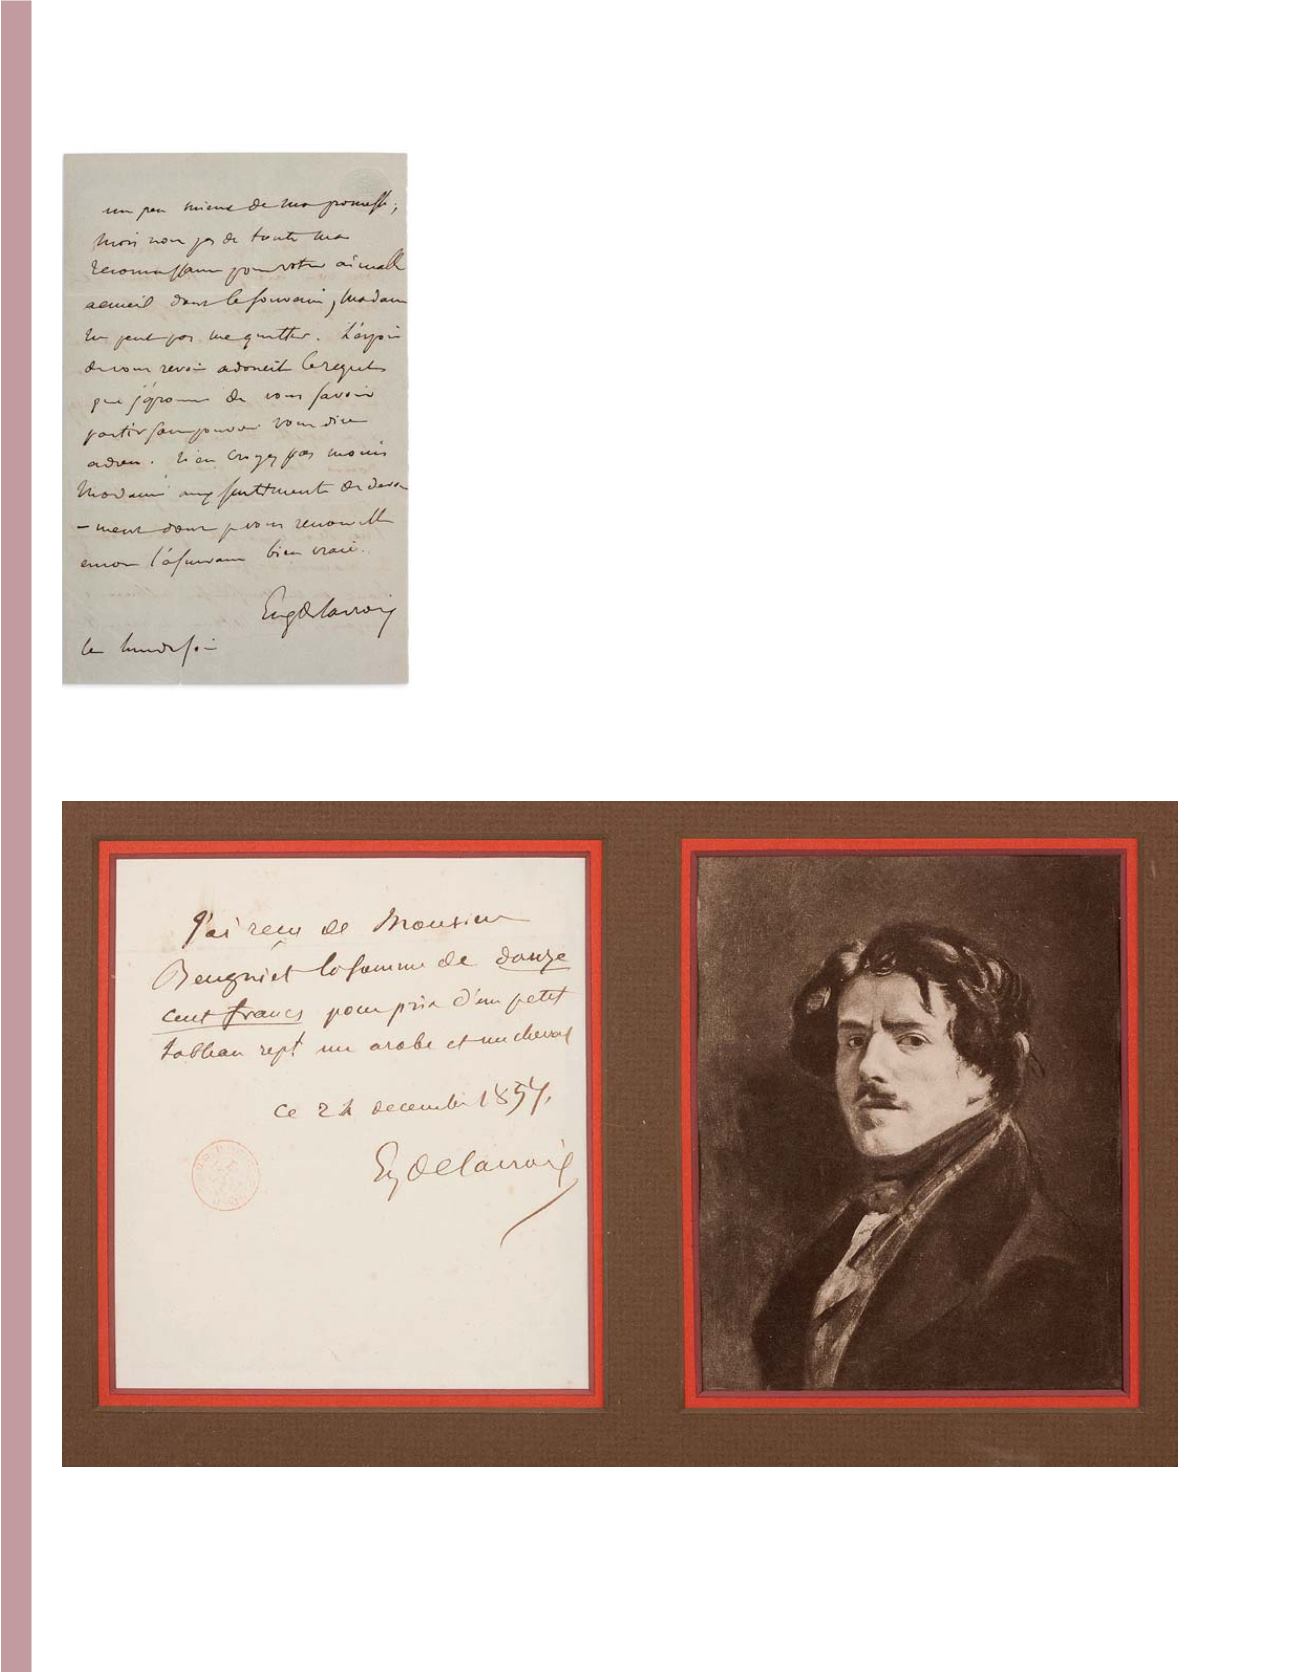 un peu mieux de ma promesse;
mais non pas de toute ma
reconnaissance pour votre aimable
accueil dont le souvenir, Madame
ne peut pas me quitter. L'espoir
de vous revoir adoucit le regret
que j'éprouve de vous savoir
partir sans pouvoir vous dire
adieu. n'en croyez pas moins
Madame aux sentiments de devoue
-ment dont je vous renouvelle
encor l'assurance bien vraie.
Eug Delacroix
ce lundi soir
J'ai reçu de Monsieur
Beugniet la somme de douze
cent francs pour prix d'un petit
tableau rept un arabe et un cheval
ce 24 decembre 1854.
Eug Delacroix